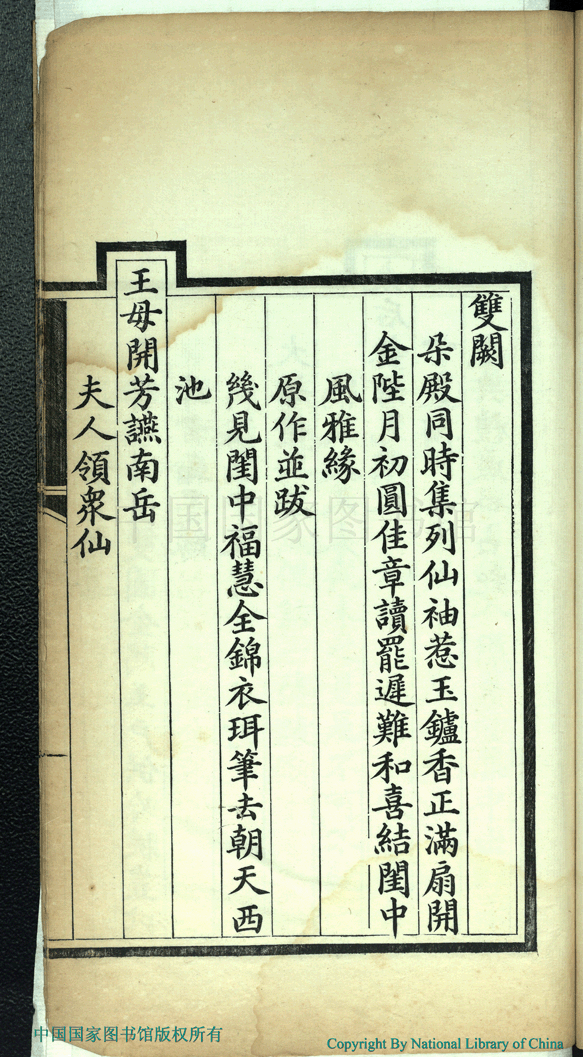 雙闕
朵殿同時集列仙袖惹玉鑪香正滿扇開
金陛月初圓佳章讀罷遲難和喜結閨中
風雅緣
原作並跋
幾見閨中福慧全錦衣珥筆去朝天西
池
王母開芳讌南岳
夫人領衆仙
中国国家图书馆
中国国家图书馆版权所有
Copyright By National Library of China